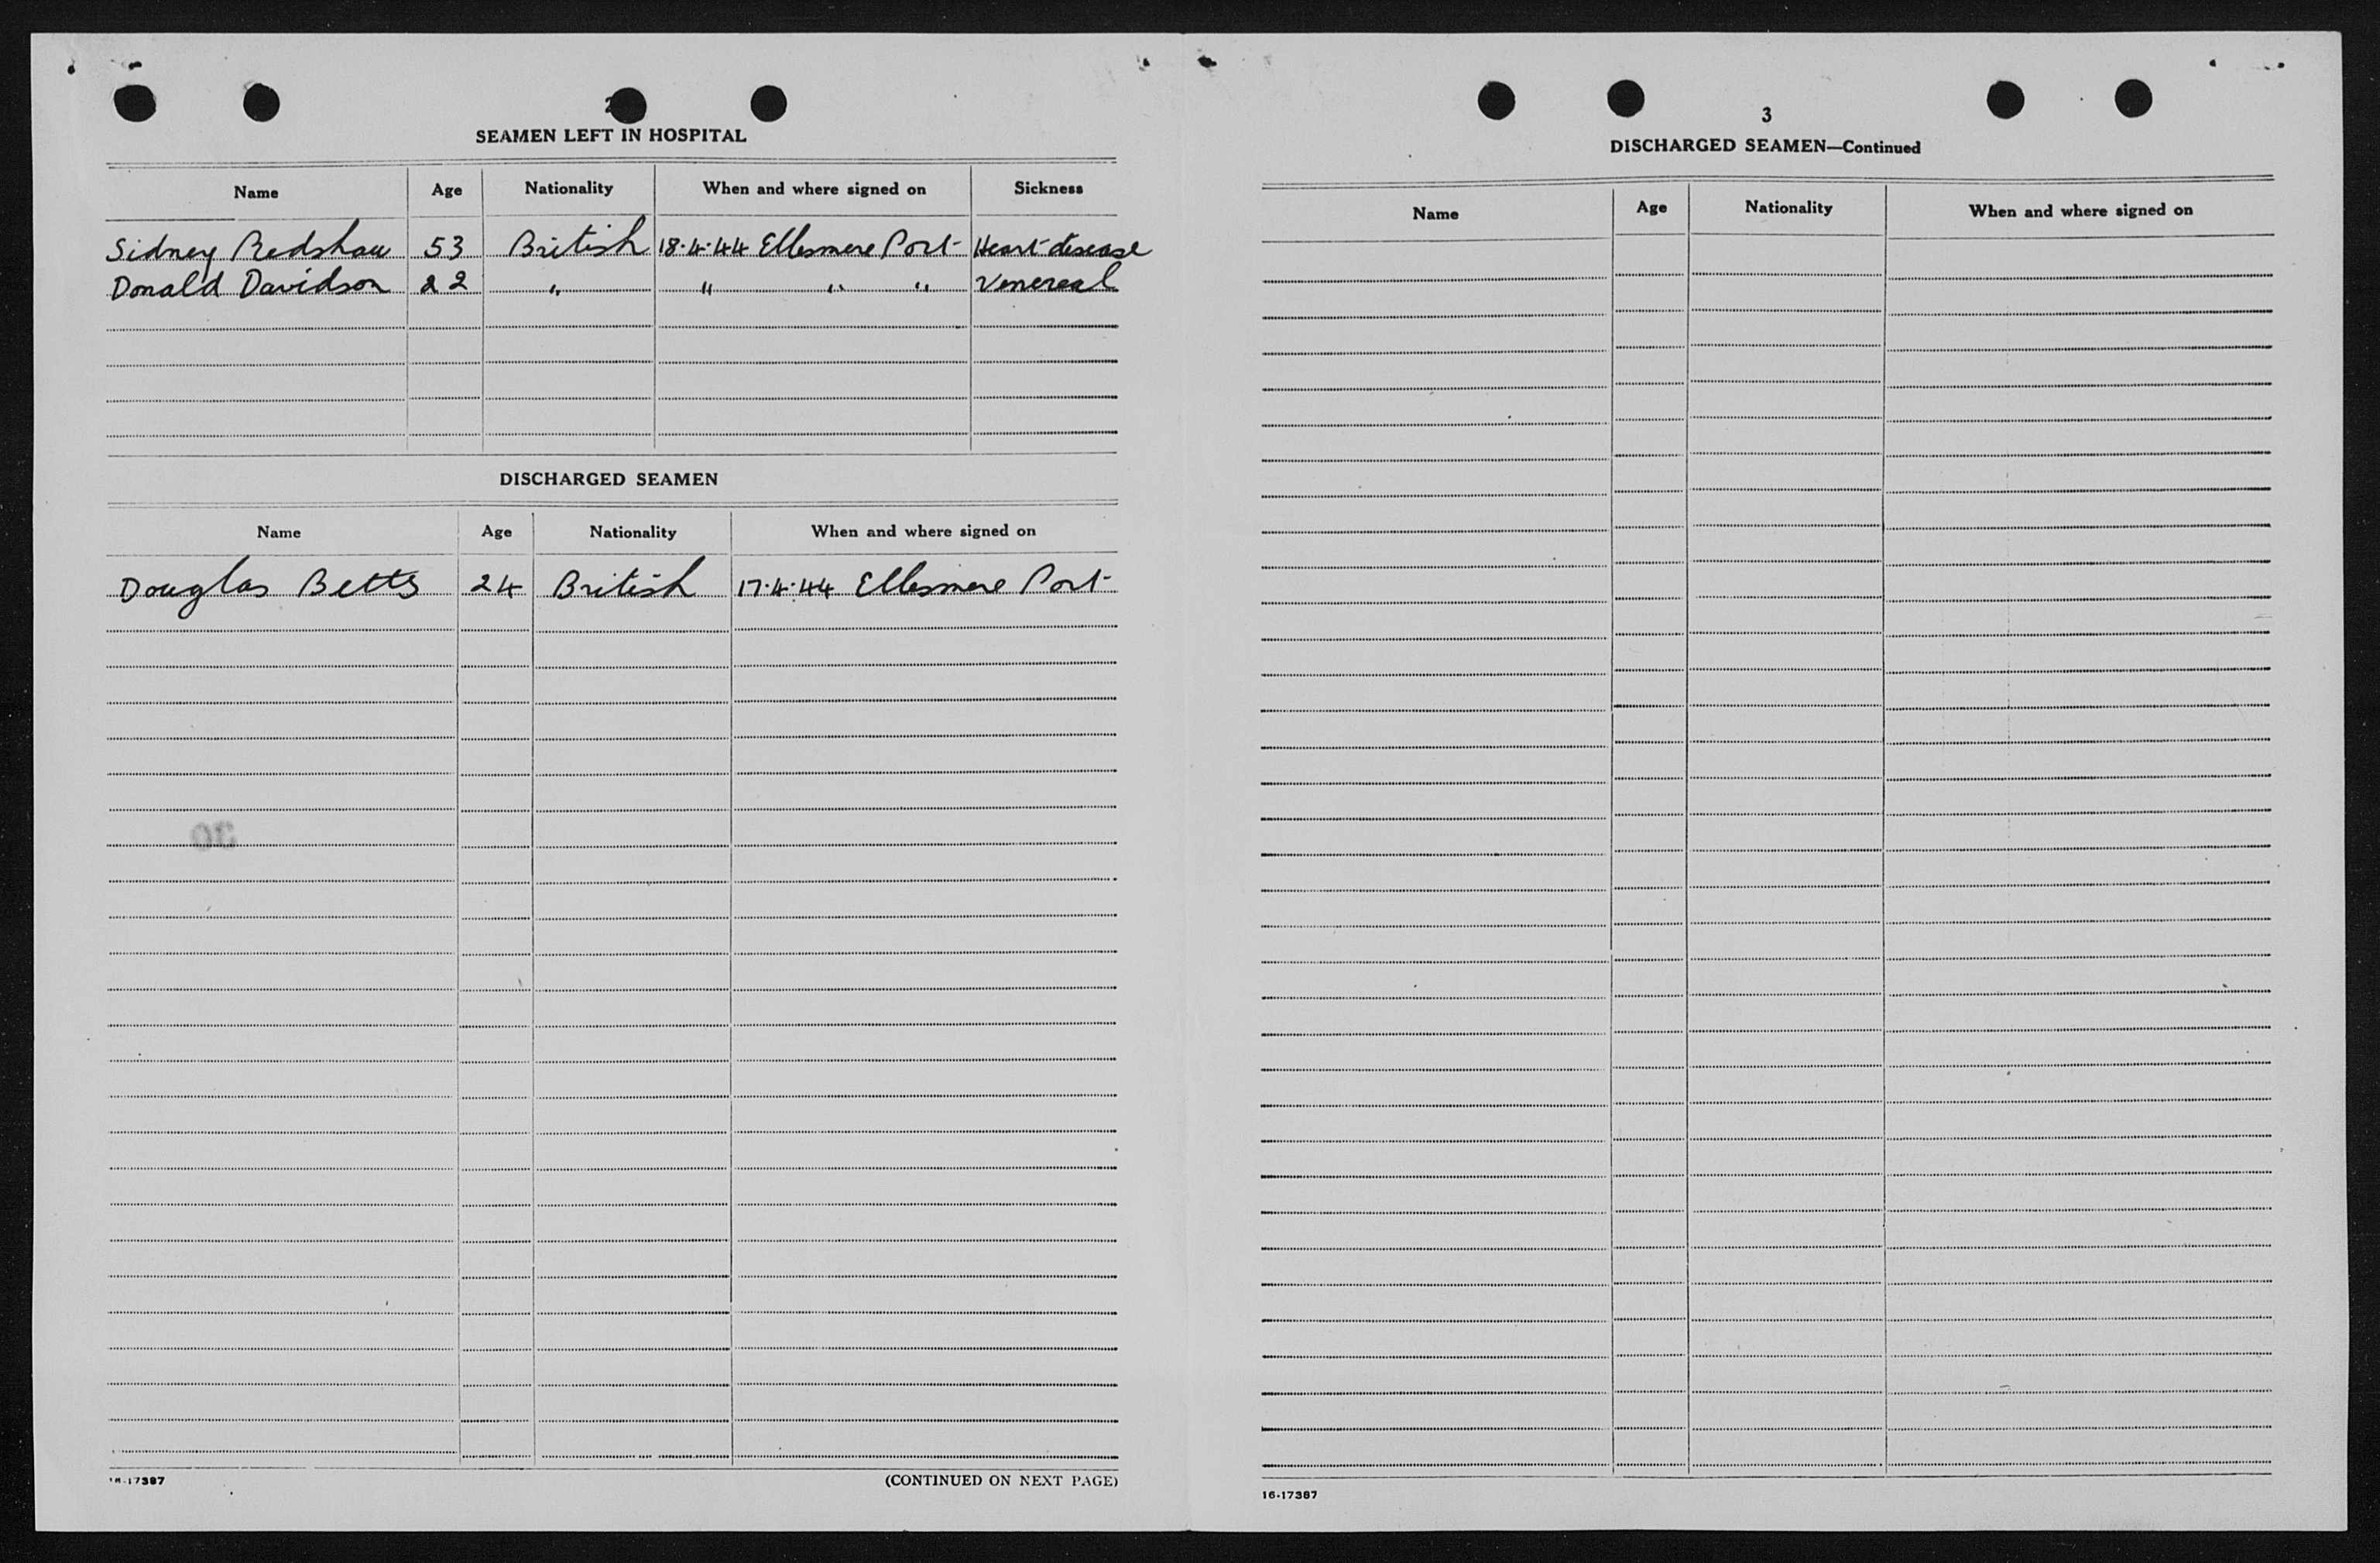 2
SEAMEN LEFT IN HOSPITAL
Name Age Nationality When and where signed on Sickness
Sidney Redshaw 53 British 18.4.44 Ellesmere Port Heart disease
Donald Davidson 22 " " " " Venereal
DISCHARGED SEAMEN
Name Age Nationality When and where signed on
Douglas Betts 24 British 17.4.44 Ellesmere Port
30
16-17387 (CONTINUED ON NEXT PAGE)
3
DISCHARGED SEAMEN—Continued
Name Age Nationality When and where signed on
16-17387